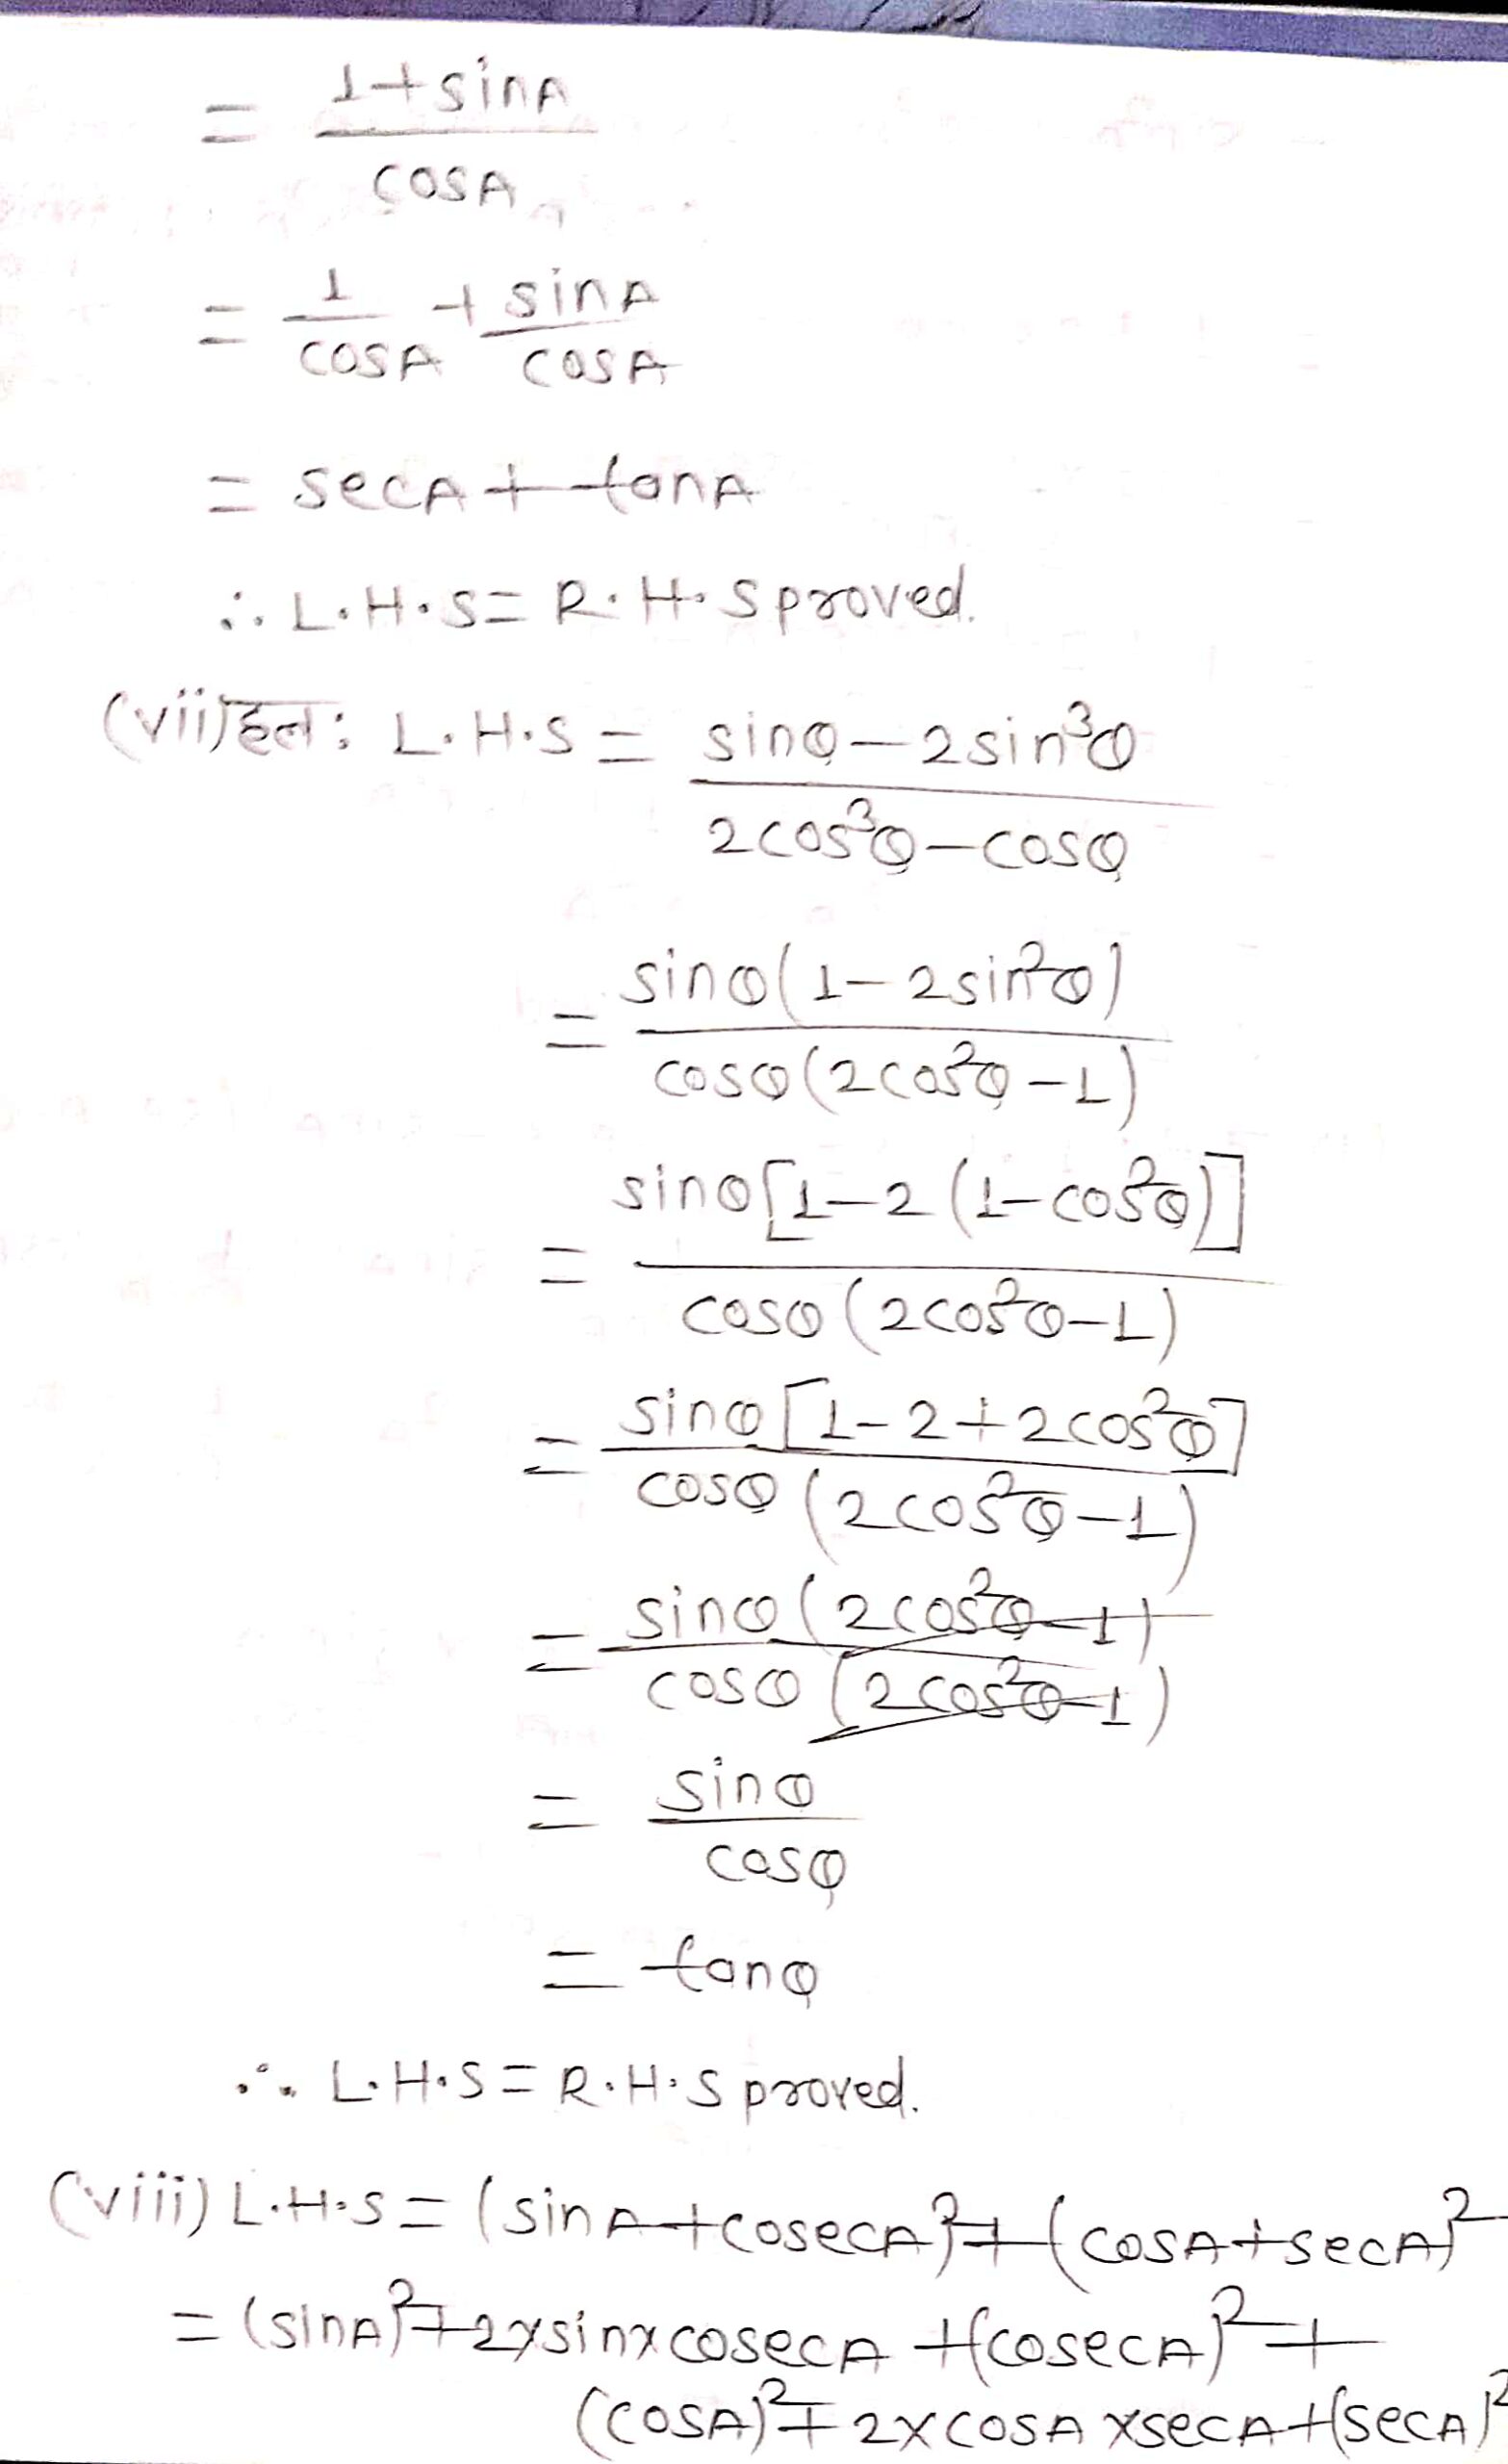 = 1+sinA / cosA
= 1/cosA + sinA/cosA
= secA + tanA
∴ L.H.S = R.H.S proved.
(vii) हल: L.H.S = sinθ - 2sin³θ / 2cos³θ - cosθ
= sinθ(1-2sin²θ) / cosθ(2cos²θ-1)
= sinθ[1-2(1-cos²θ)] / cosθ(2cos²θ-1)
= sinθ[1-2+2cos²θ] / cosθ(2cos²θ-1)
= sinθ(2cos²θ-1) / cosθ(2cos²θ-1)
= sinθ / cosθ
= tanθ
∴ L.H.S = R.H.S proved.
(viii) L.H.S = (sinA+cosecA)²+(cosA+secA)²
= (sinA)²+2×sin×cosecA+(cosecA)²+
(cosA)²+2×cosA×secA+(secA)²